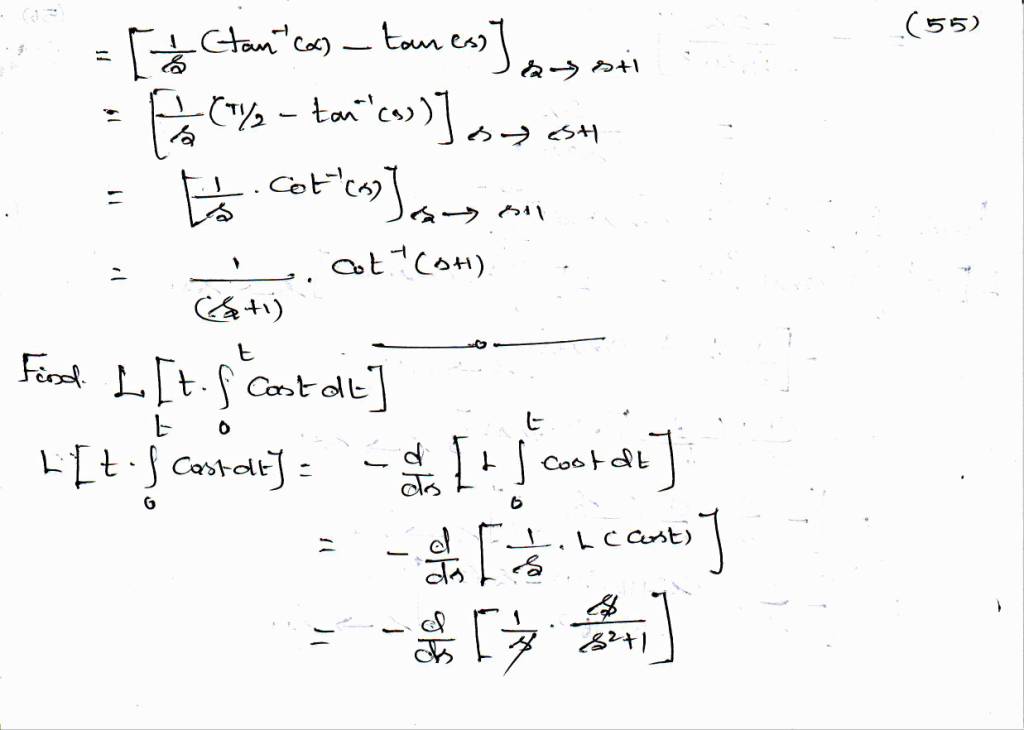 (55)
= [ 1/s (tan⁻¹(∞) – tan(s) ] s → s+1
= [ 1/s (π/2 – tan⁻¹(s)) ] s → s+1
= [ 1/s . Cot⁻¹(s) ] s → s+1
= 1/(s+1) . Cot⁻¹(s+1)
Find. L [ t. ∫₀ᵗ Cost dt ]
L [ t. ∫₀ᵗ Cost dt ] = – d/ds [ L ∫₀ᵗ cost dt ]
= – d/ds [ 1/s . L(Cost) ]
= – d/ds [ 1/s . s/s²+1 ]